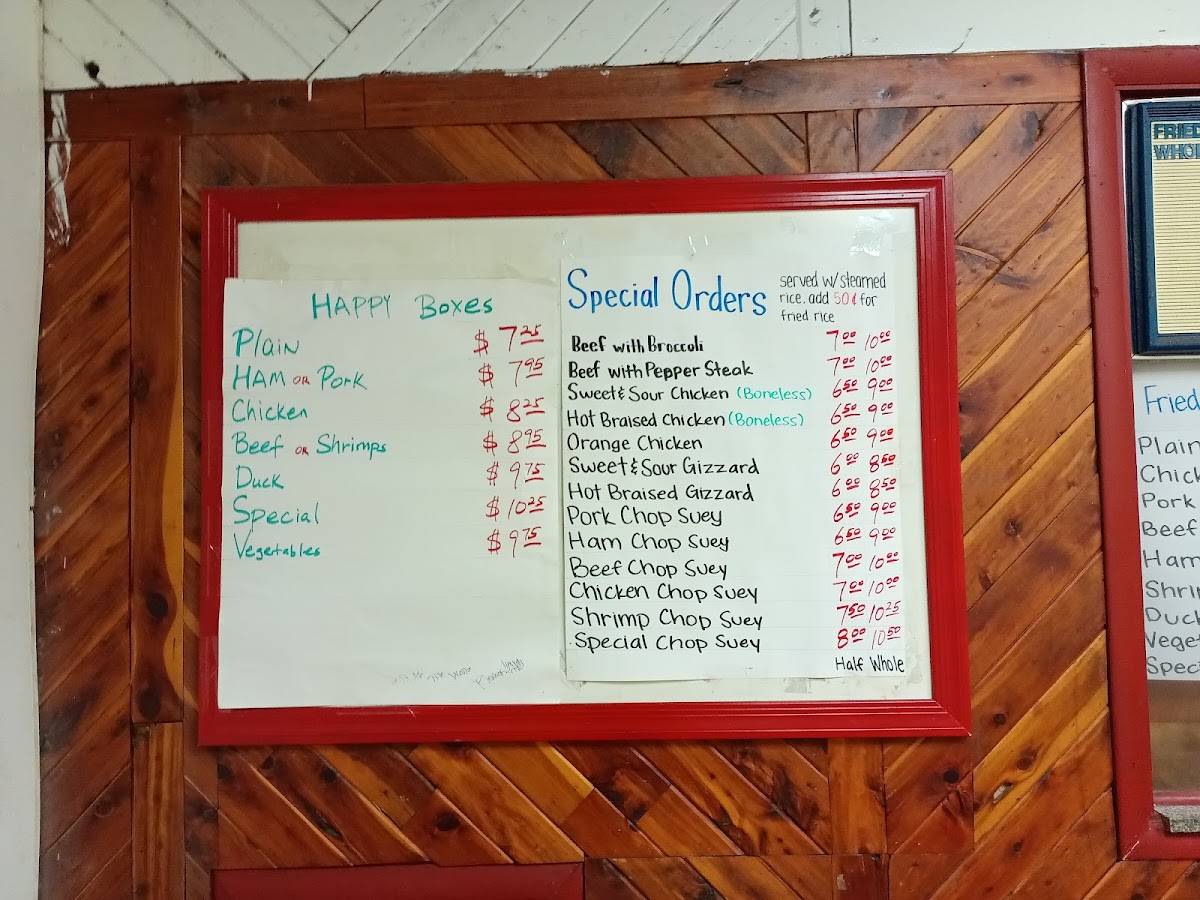 HAPPY Boxes
Plain $ 7.25
HAM OR Pork $ 7.95
Chicken $ 8.25
Beef OR Shrimps $ 8.95
Duck $ 9.75
Special $ 10.25
Vegetables $ 9.75
Special Orders
served w/ steamed
rice. add 50¢ for
fried rice
Beef with Broccoli 7.00 10.00
Beef with Pepper Steak 7.00 10.00
Sweet & Sour Chicken (Boneless) 6.50 9.00
Hot Braised Chicken (Boneless) 6.50 9.00
Orange Chicken 6.50 9.00
Sweet & Sour Gizzard 6.00 8.50
Hot Braised Gizzard 6.00 8.50
Pork Chop Suey 6.50 9.00
Ham Chop Suey 6.50 9.00
Beef Chop Suey 7.00 10.00
Chicken Chop Suey 7.00 10.00
Shrimp Chop Suey 7.50 10.25
Special Chop Suey 8.00 10.50
Half Whole
FRIED
WHOL
Fried
Plain
Chick
Pork
Beef
Ham
Shri
Duck
Veget
Spec